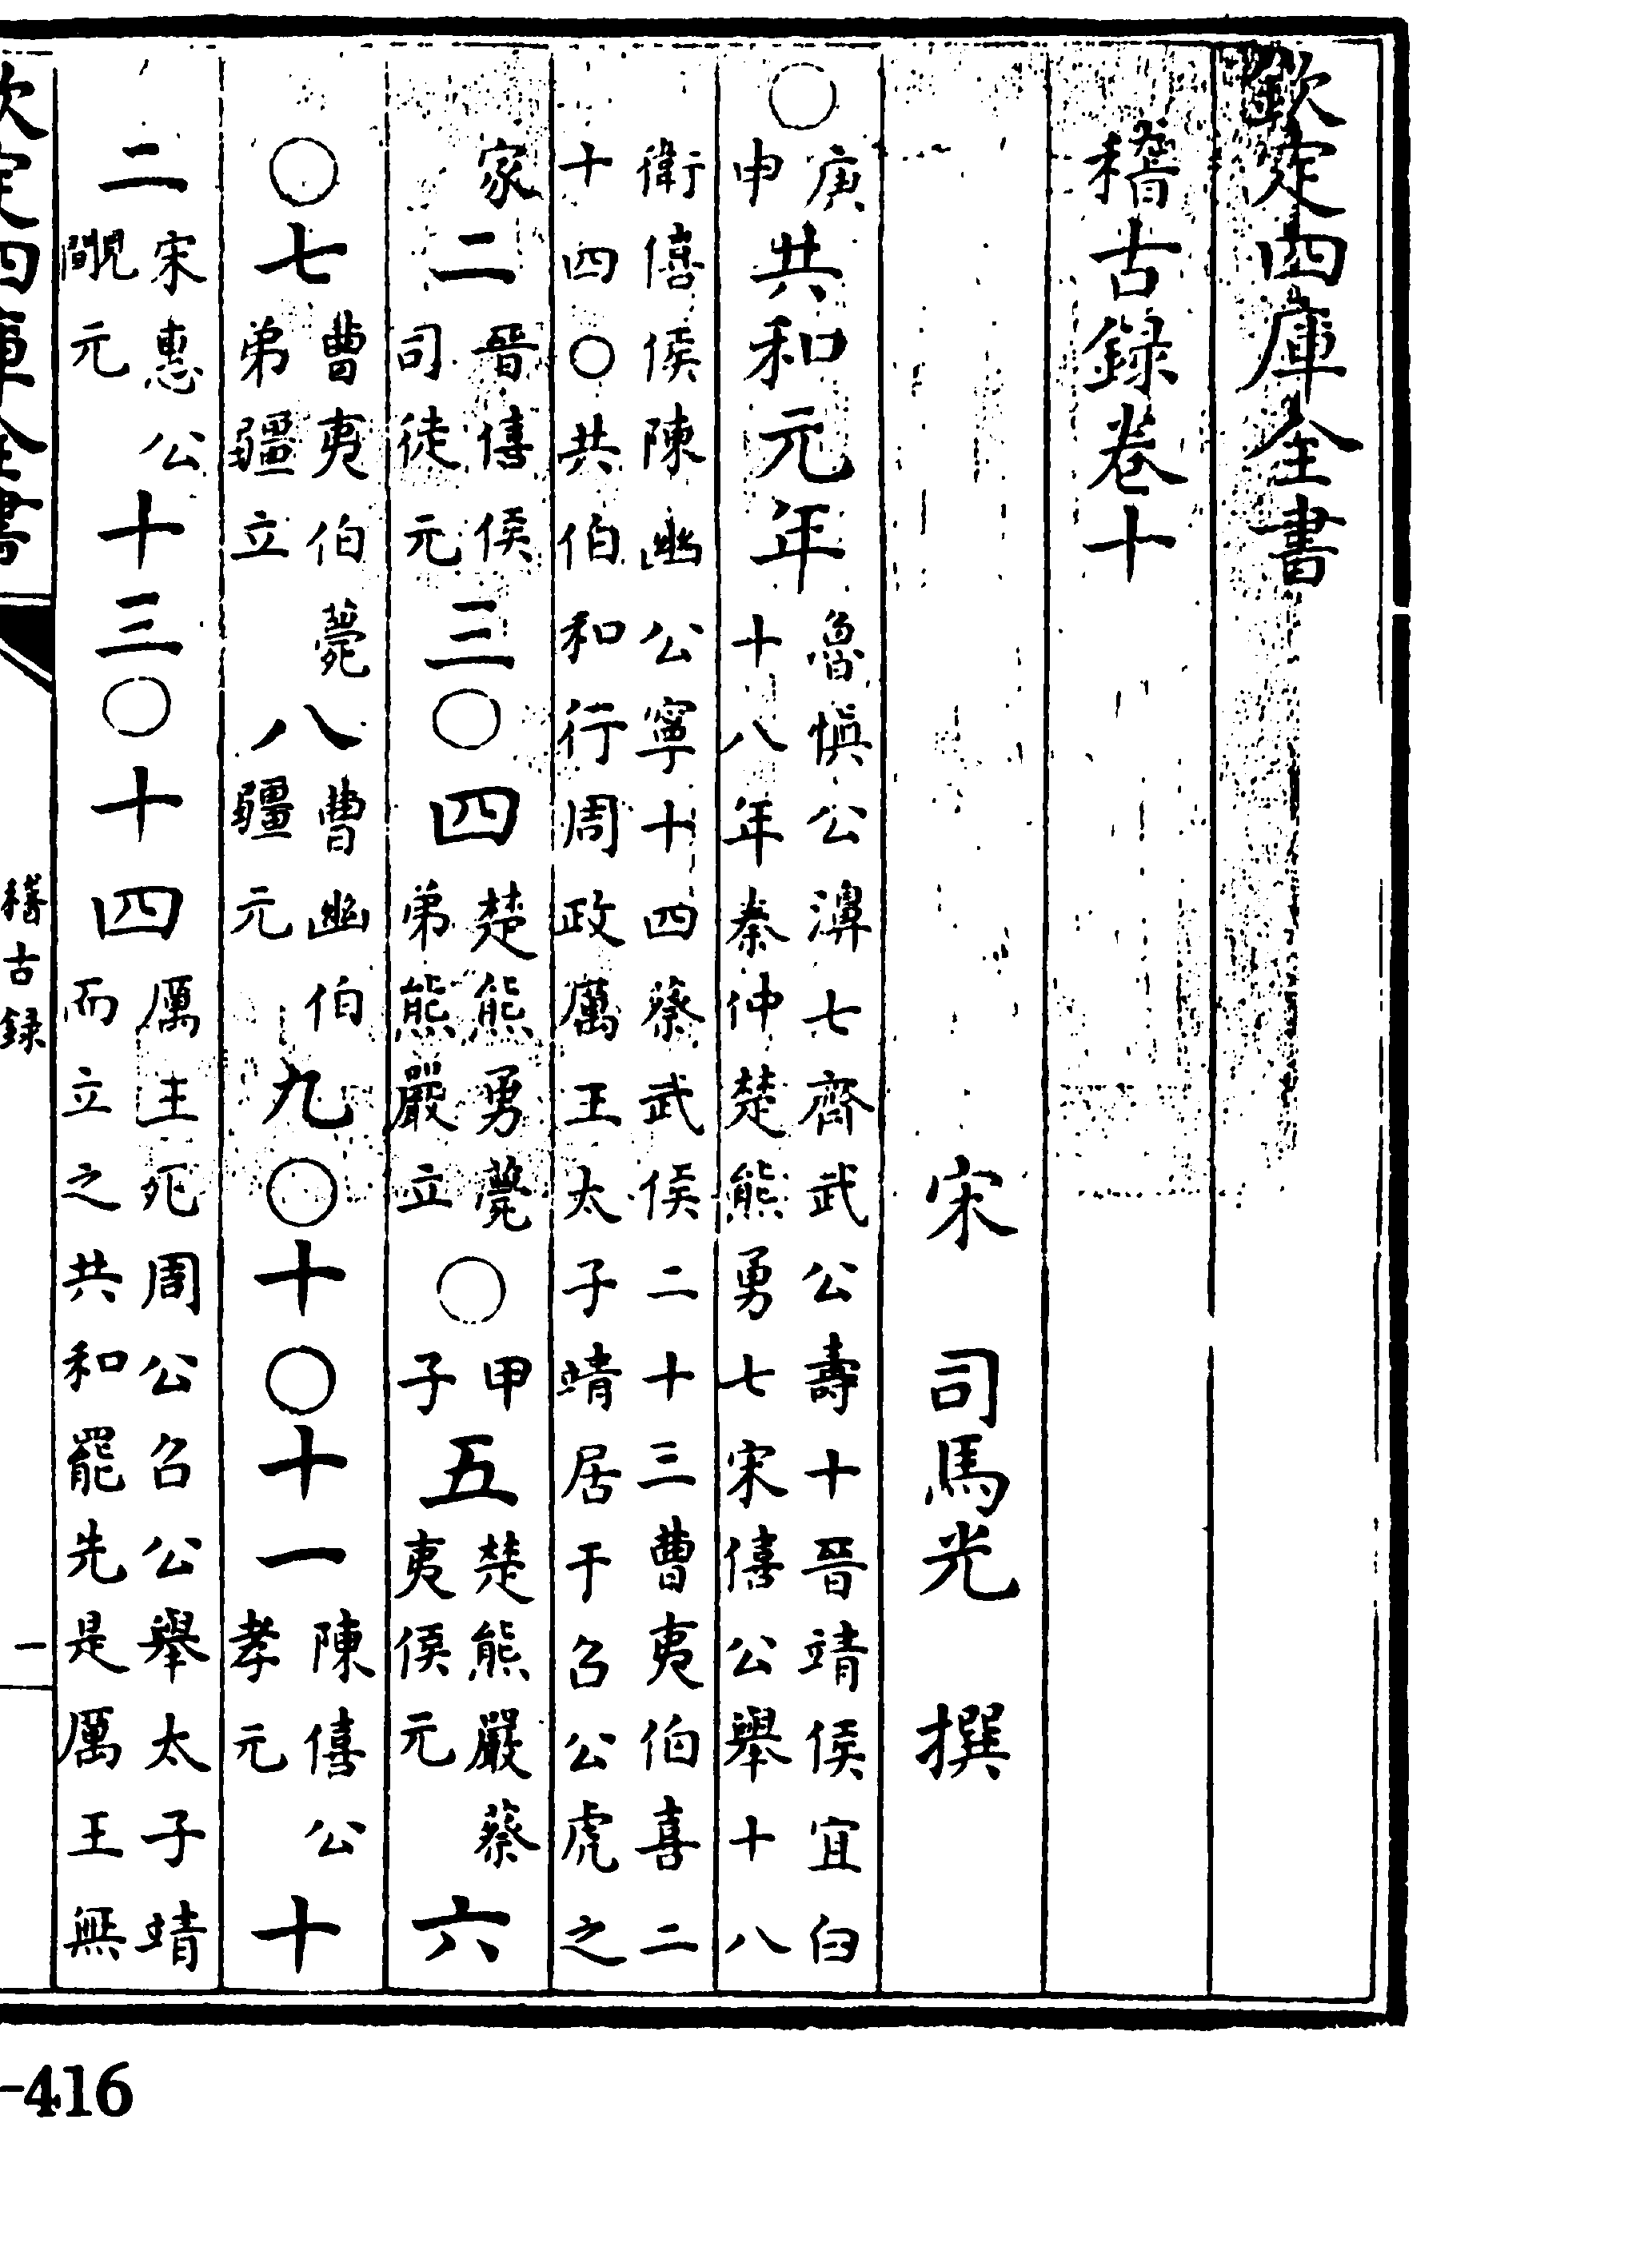 欽定四庫全書
稽古録卷十
宋 司馬光 撰
○庚申共和元年魯慎公濞七齊武公壽十晉靖侯宜臼十八年秦仲楚熊勇七宋僖公舉十八
衛僖侯陳幽公寧十四蔡武侯二十三曹夷伯喜二十四○共伯和行周政厲王太子靖居于召公虎之
家二晉僖侯司徒元三○四楚熊勇薨弟熊嚴立○甲子五楚熊嚴蔡夷侯元六
○七曹夷伯薨弟彊立八曹幽伯彊元九○十○十一陳僖公孝元十
二宋惠公覸元十三○十四厲王死周公召公舉太子靖而立之共和罷先是厲王無
欽定四庫全書 稽古録 一
-416